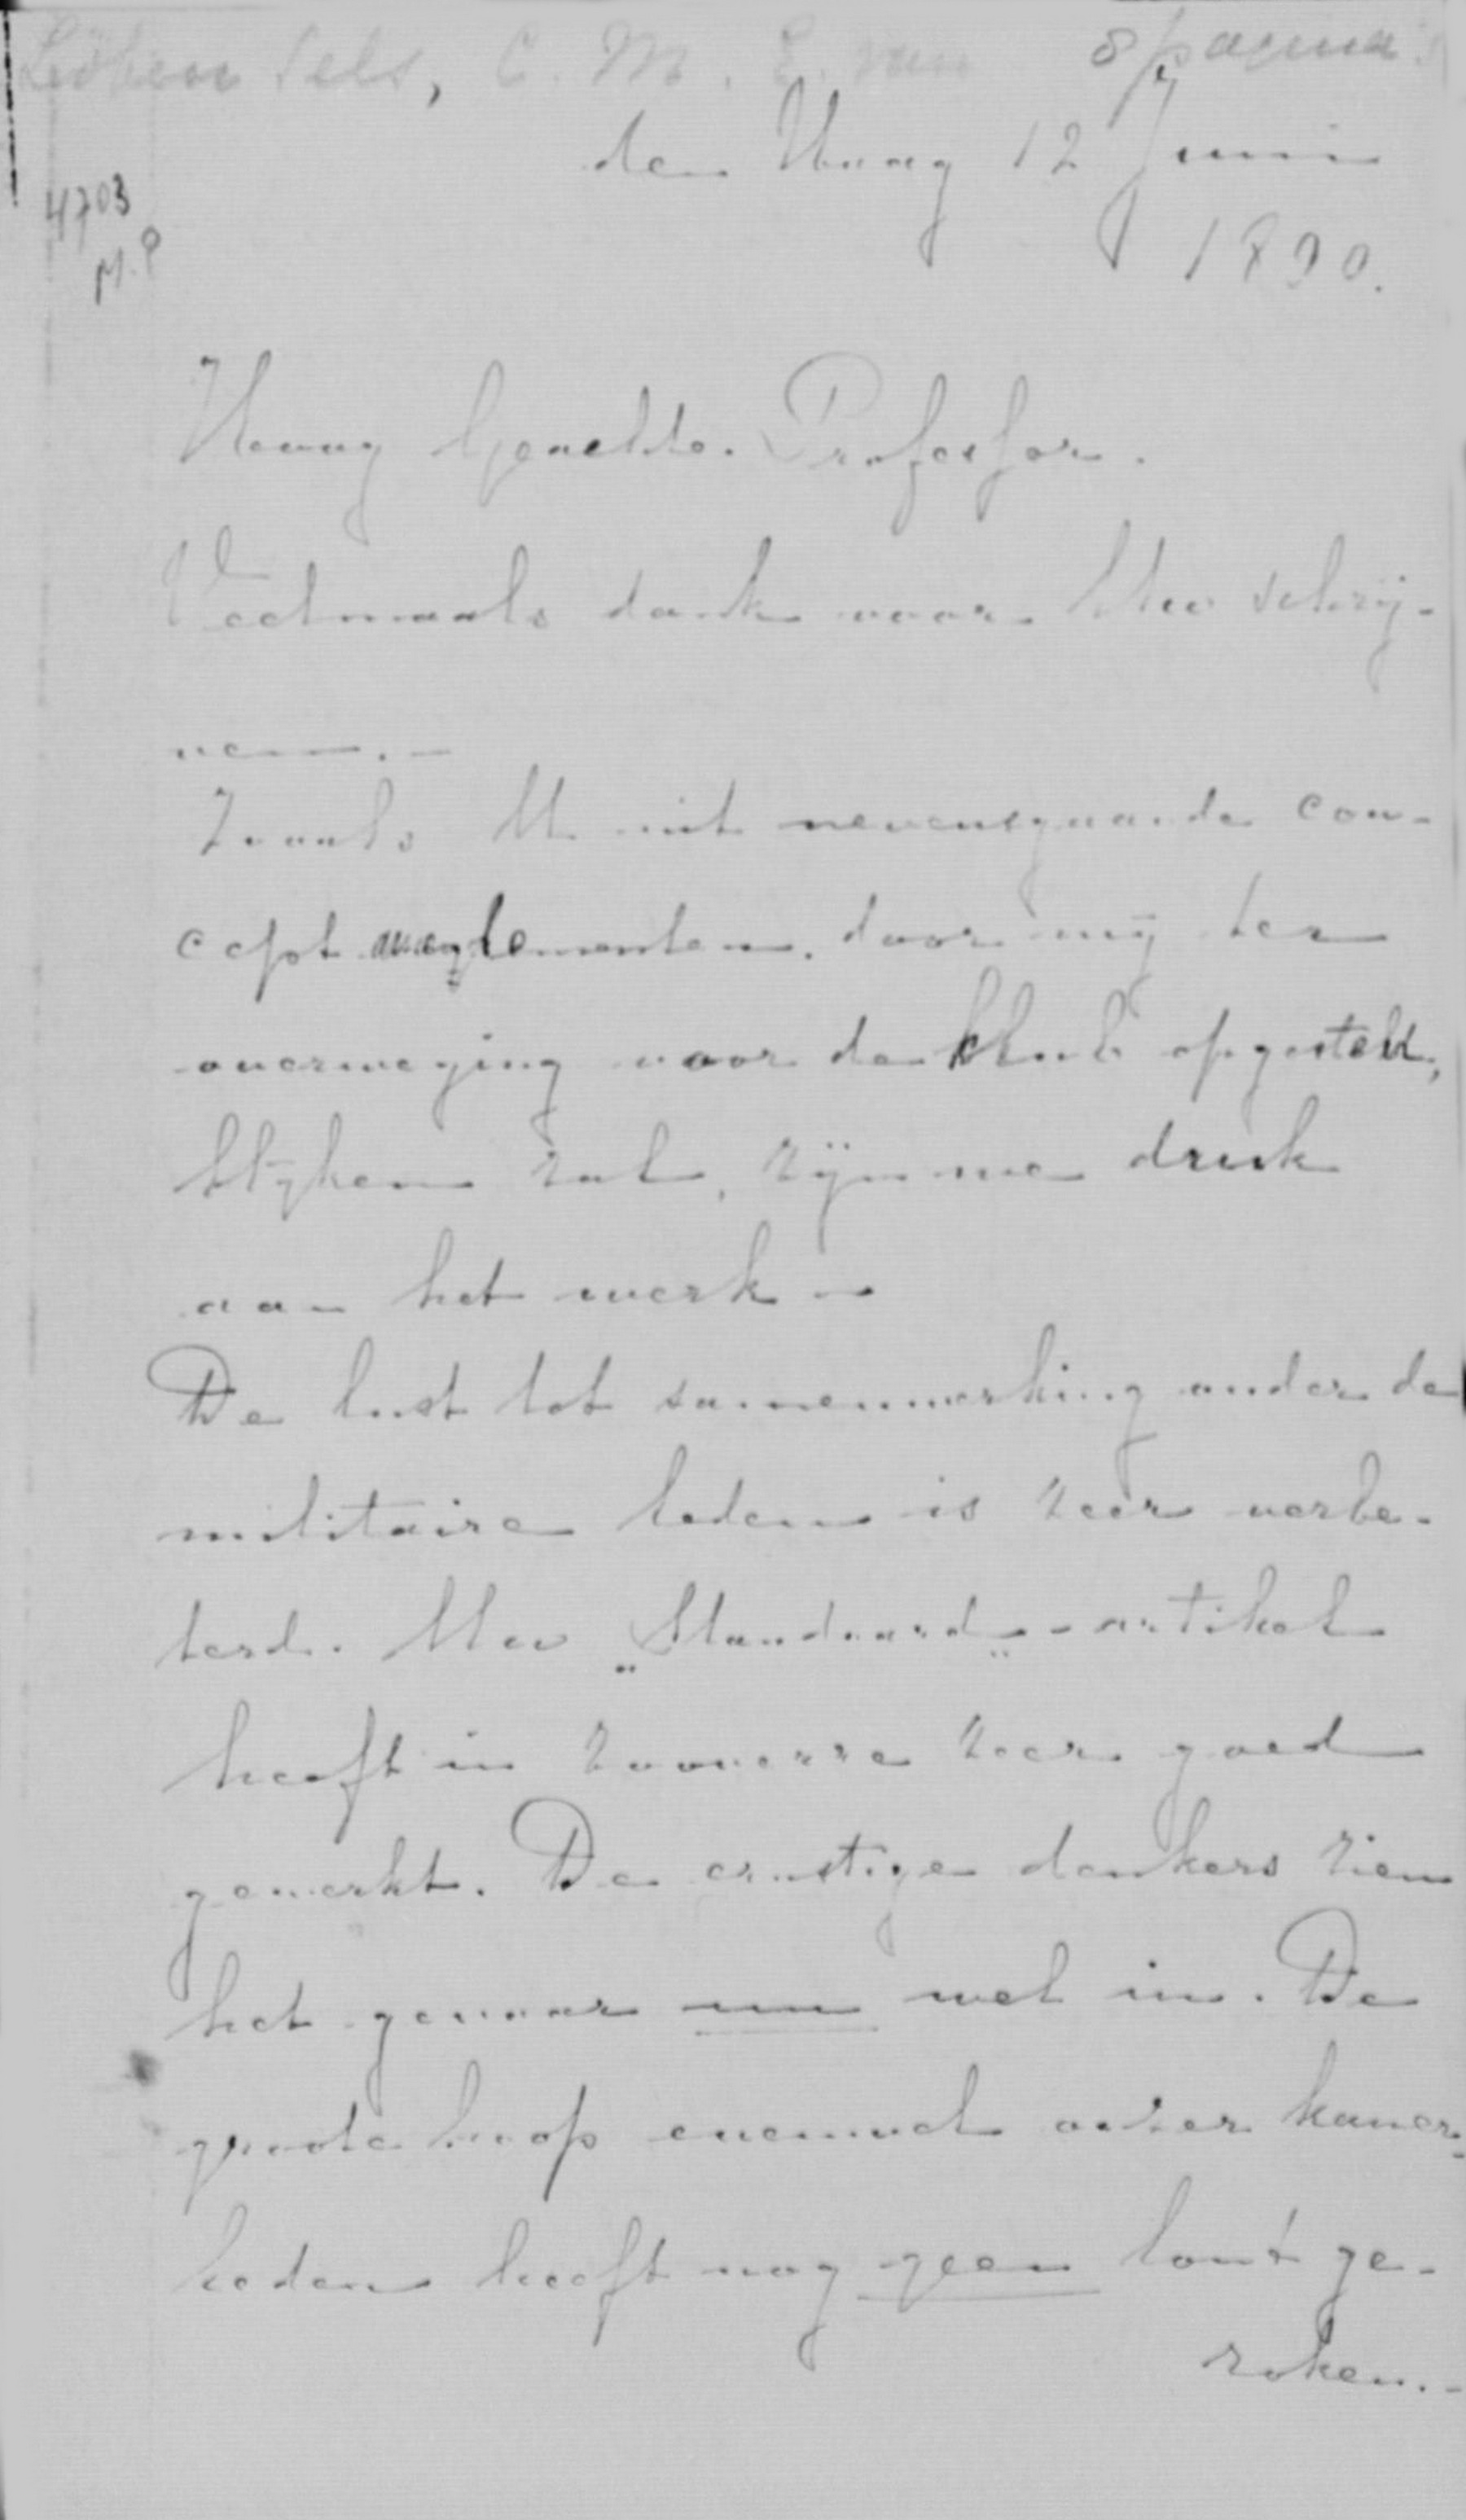 Löben Sels, C. M. E. van 8 pagina's
den Haag 12 Juni
1890.
4703
M.P
Hoog Geachte Professor.
Veelmaals dank voor Uw schrij-
ven. -
Zooals U uit nevensgaande con-
cept amendementen, door mij ter
overweging voor de klub opgesteld,
blijken zal, zijn we druk
aan het werk -
De lust tot samenwerking onder de
militaire leden is zeer verbe-
terd. Uw "Standaard"-artikel
heeft in zooverre zeer goed
gewerkt. De ernstige denkers zien
het gevaar nu wel in. De
groote hoop evenwel onzer kamer-
leden heeft nog geen lont ge-
roken. -